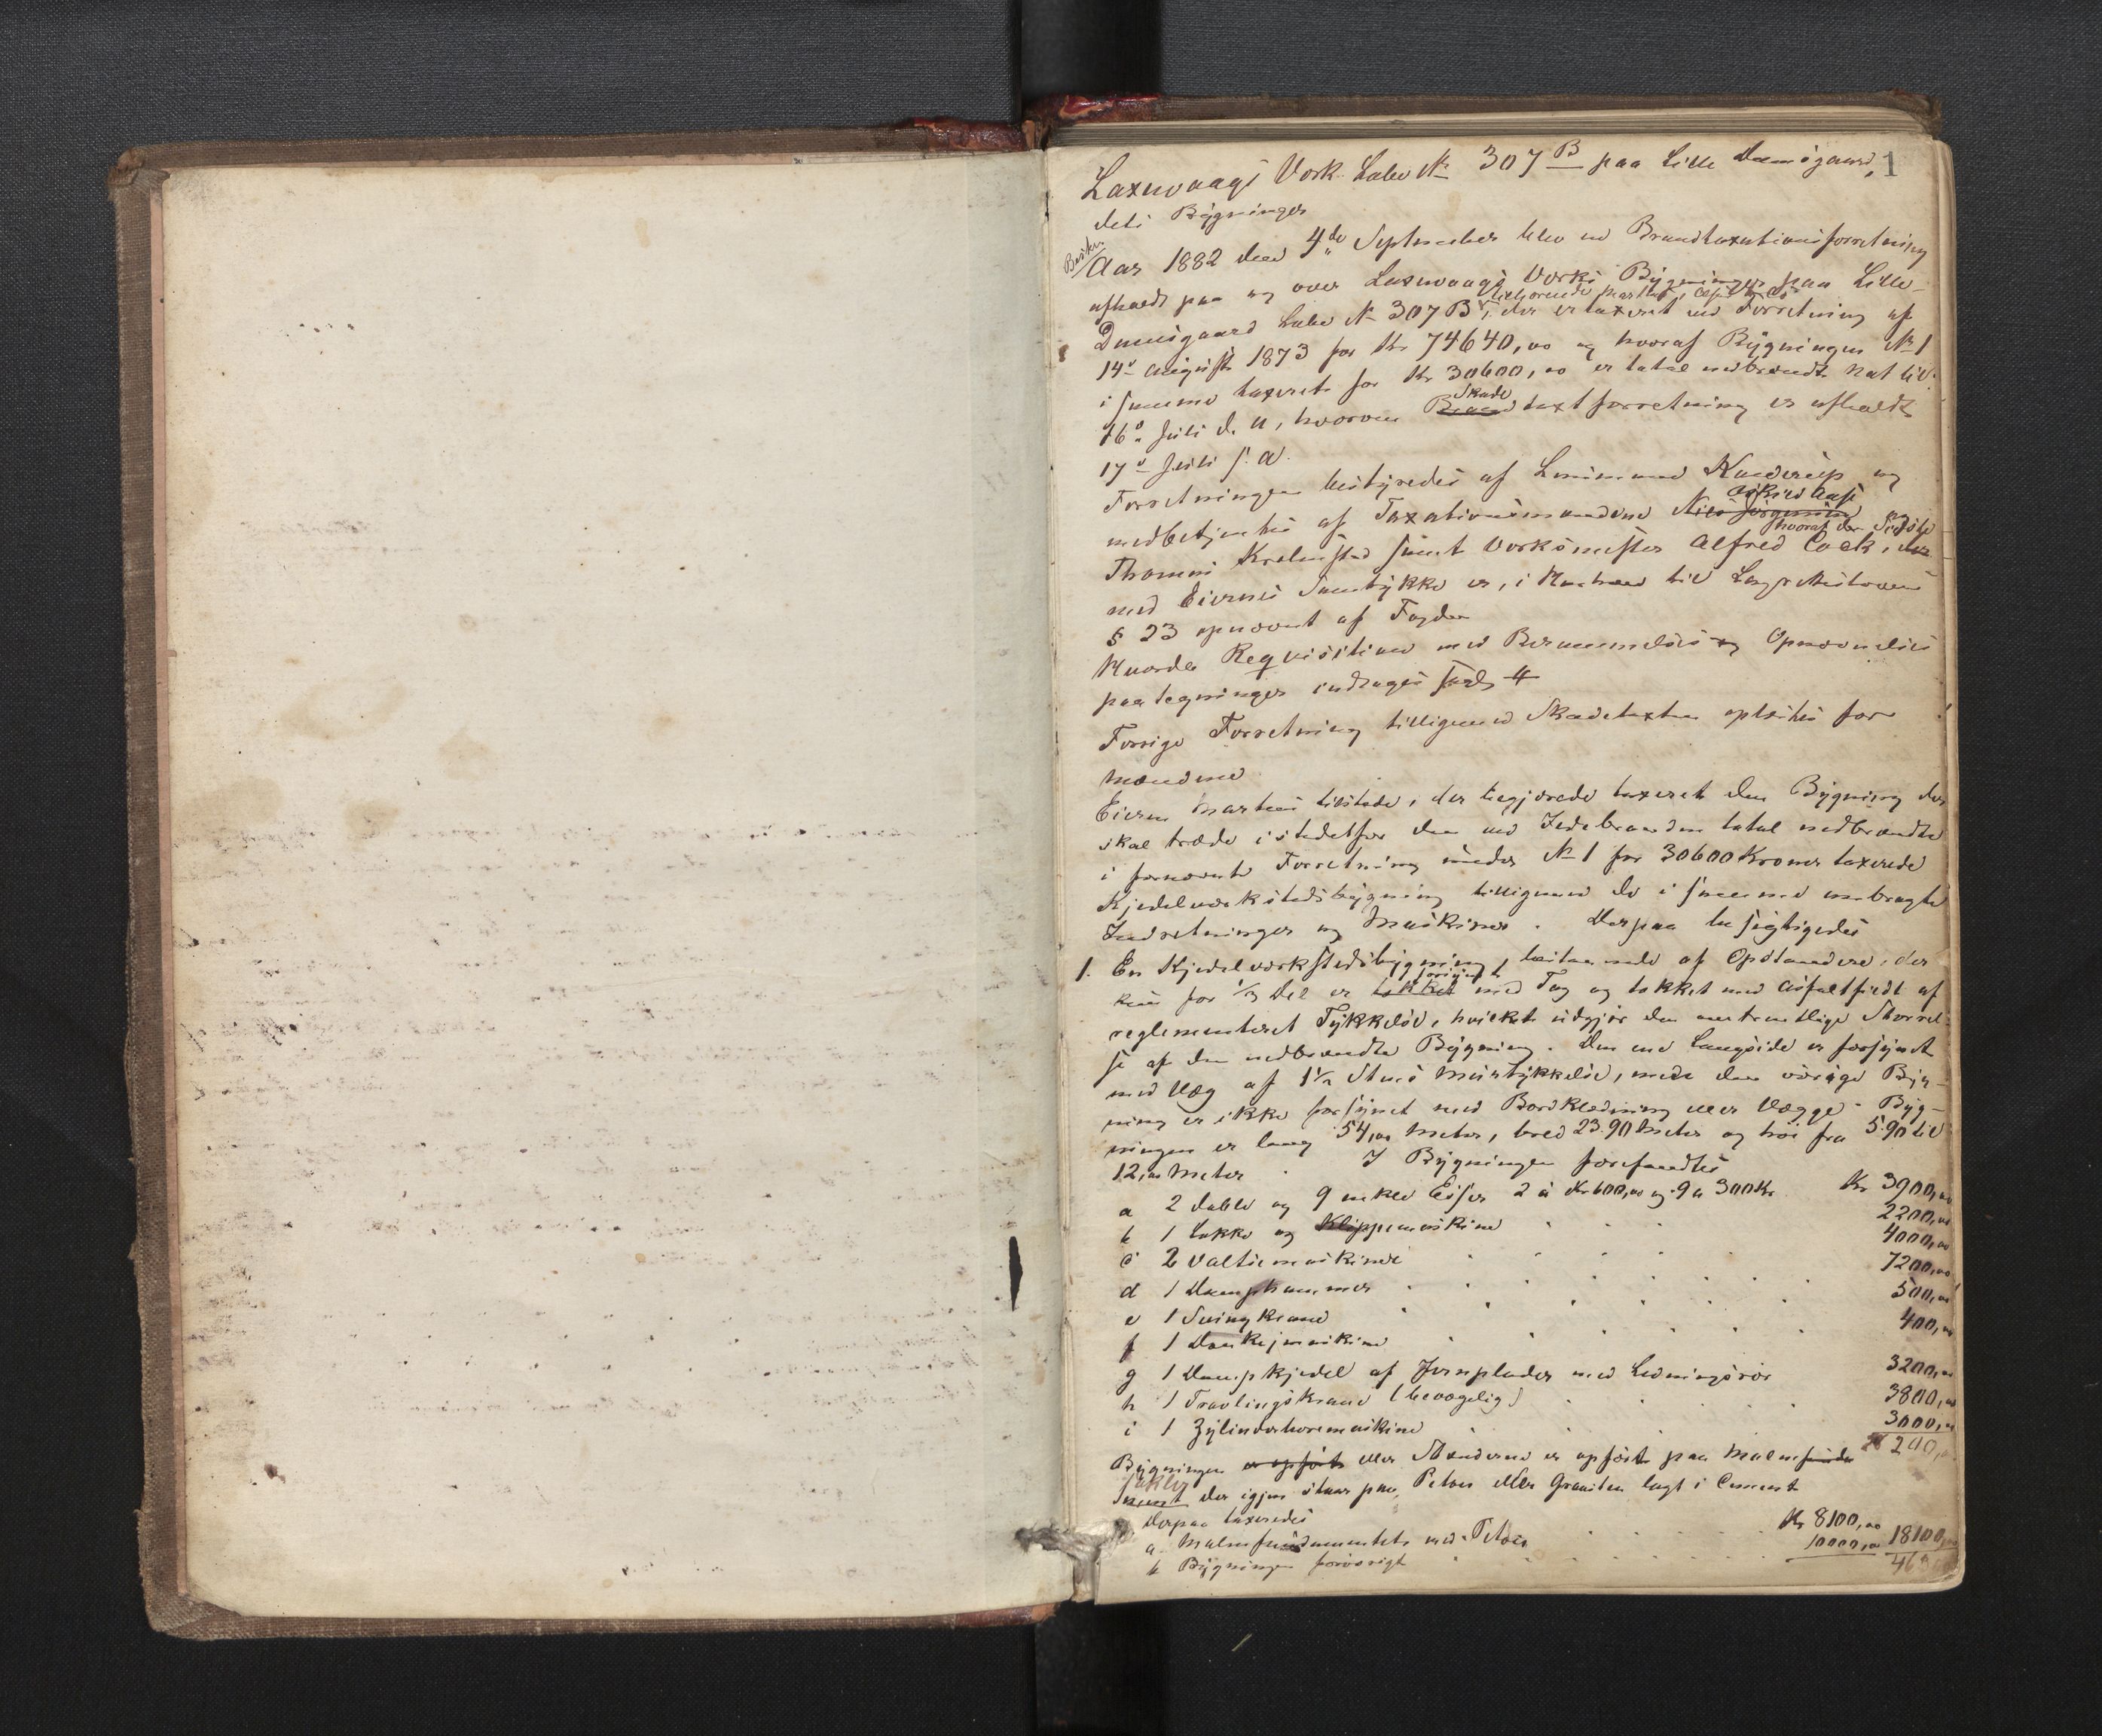 Laxevaags Værk Løbe No 307 B paa Lille Damsgaard, 1
dets Bygninger
Beskr.
Aar 1882 den 4de September blev en Brandtaxationsforretning
afholdt paa og over Laxevaags Værks Bygninger paa Lille
tilhørende
Damsgaard Løbe No 307 B, der er taxeret ved Forretning af
14de August 1873 for Kr 74640,00 og hvoraf Bygningen No 1
i samme taxeret for Kr 30600,00 er total nedbrændt Nat til
Skade
16de Juli d. A, hvorom Brandtaxtforretning er afholdt
17de Juli s. A.
Forretningen bestyredes af Lensmand Knderup og
medbetjentes af Taxationsmændene Nils Jørgensen
hvoraf den Sidste
Thomas samt Værksmester Alfred Cock, der
med Eiernes Samtykke er, i Henhold til Lagrettelovens
§ 23 opnævnt af Fogden
Hvorda Reqvisition med Berammelses og Opnævnelses
paategninger indtages
Forrige Forretning tilligemed Skadetaxten oplæstes for
Mændene
Eieren Martens tilstede, der begjærede taxeret den Bygning der
skal træde istedetfor den ved Ildebranden total nedbrændte
i fornævnte Forretning under No 1 for 30600 Kroner taxerede
Kjedelværkstedsbygning tilligemed de i samme anbragte
Indretninger og Maskiner. Derpaa besigtigedes
1. En Kjedelværkstedsbygning, bestaaende af Opstandere, der
forsynet
kun for 1/3 Del er takket med Tag og takket med Asfaltfildt af
reglementeret Tykkelse, hvilket udgjør den omtrentlige Størrel-
se af den nedbrændte Bygning. Den ene Langside er forsynet
med Væg af 1½ Stens Murtykkelse, mens den øvrige Byg-
ning er ikke forsynet med Bordklædning eller Vægge. Byg-
ningen er lang 54,00 Meter, bred 23.90 Meter og høi fra 5.90 til
12,00 Meter. I Bygningen forefandtes
a 2 doble og 9 enkle Esser 2 à Kr 600,00 og 9 a 300 Kr Kr 3900,00
b 1 Lokke og Klippemaskine 2200,00
c 2 Valsemaskiner 4000,00
d 1 Damphammer 7200,00
e 1 Svingkrane 500,00
f 1 Donkeymaskine 400,00
g 1 Dampkjedel af Jernplader med Ledningsrør 3200,00
h 1 Travlingskrane (bevægelig) 3800,00
i 1 Zylinderboremaskine 3000,00
28200,00
Bygningen er opført eller Stænderne er opført paa Malmfunda
sokler
ment der igjen staar paa Peton eller Graniten lagt i Cement
Derpaa taxeredes
a Malmfundamentet med Peton Kr 8100,00
b Bygningen forøvrigt 10000,00 18100,00